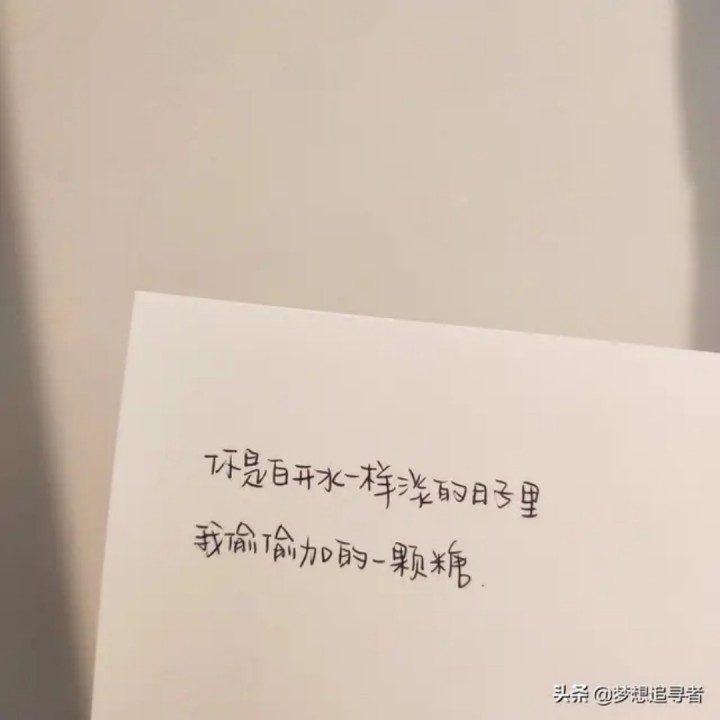 你是白开水一样淡的日子里
我偷偷加的一颗糖.
头条 @梦想追寻者